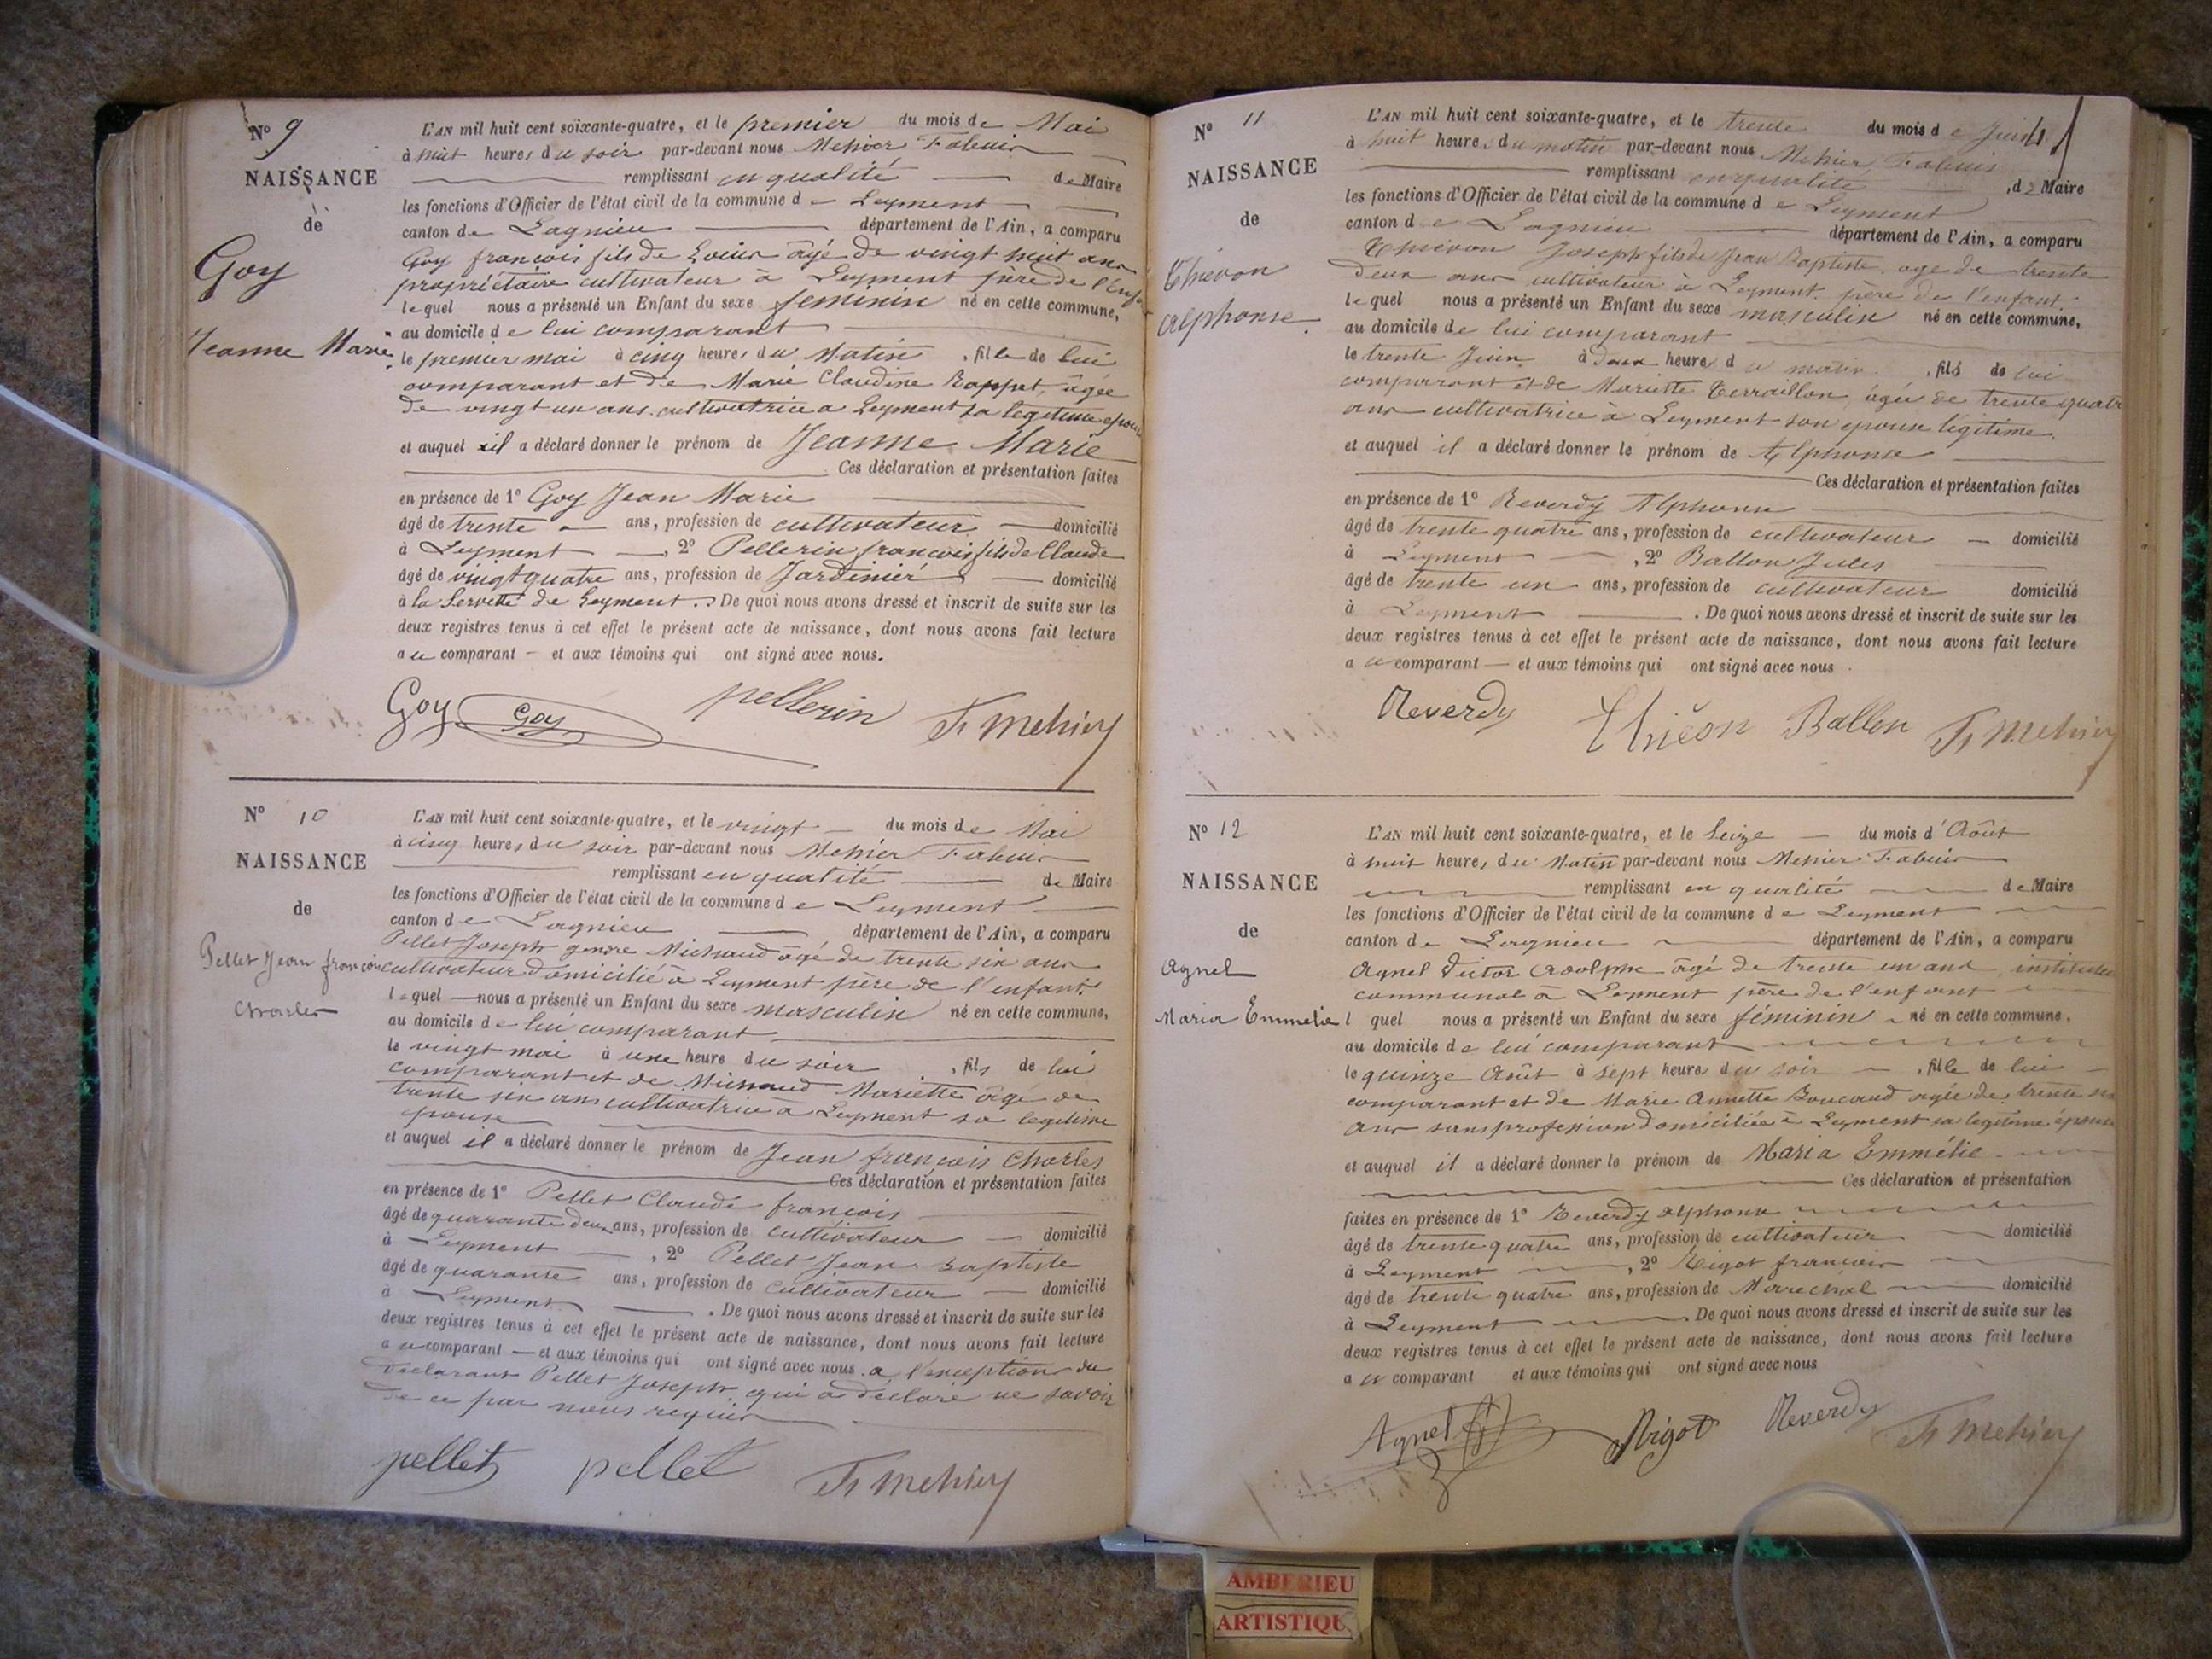 N° 9
NAISSANCE
de
Goy
Jeanne Marie
L'AN mil huit cent soixante-quatre, et le premier du mois de Mai
à huit heures du soir par-devant nous Mehier Fabius
remplissant en qualité de Maire
les fonctions d'Officier de l'état civil de la commune de Leyment
canton de Lagnieu département de l'Ain, a comparu
Goy françois fils de Louis âgé de vingt huit ans
propriétaire cultivateur à Leyment père de l'enfant
lequel nous a présenté un Enfant du sexe féminin né en cette commune,
au domicile de lui comparant
le premier mai à cinq heures du Matin, fille de lui
comparant et de Marie Claudine Rappet, âgée
de vingt un ans cultivatrice a Leyment sa légitime epouse
et auquel il a déclaré donner le prénom de Jeanne Marie
Ces déclaration et présentation faites
en présence de 1° Goy Jean Marie
âgé de trente ans, profession de cultivateur domicilié
à Leyment, 2° Pellerin françois fils de Claude
âgé de vingt quatre ans, profession de Jardinier domicilié
à la Servette de Leyment. De quoi nous avons dressé et inscrit de suite sur les
deux registres tenus à cet effet le présent acte de naissance, dont nous avons fait lecture
au comparant et aux témoins qui ont signé avec nous.
Goy Goy pellerin Fs Mehier
N° 10
NAISSANCE
de
Pellet Jean françois
Charles
L'AN mil huit cent soixante-quatre, et le vingt du mois de Mai
à cinq heures du soir par-devant nous Mehier Fabius
remplissant en qualité de Maire
les fonctions d'Officier de l'état civil de la commune de Leyment
canton de Lagnieu département de l'Ain, a comparu
Pellet Joseph gendre Michaud âgé de trente six ans
cultivateur domicilié à Leyment père de l'enfant
lequel nous a présenté un Enfant du sexe masculin né en cette commune,
au domicile de lui comparant
le vingt mai à une heure du soir, fils de lui
comparant et de Michaud Mariette âgé de
trente six ans cultivatrice à Leyment sa legitime
epouse
et auquel il a déclaré donner le prénom de Jean françois Charles
Ces déclaration et présentation faites
en présence de 1° Pellet Claude françois
âgé de quarante deux ans, profession de cultivateur domicilié
à Leyment, 2° Pellet Jean Baptiste
âgé de quarante ans, profession de cultivateur domicilié
à Leyment. De quoi nous avons dressé et inscrit de suite sur les
deux registres tenus à cet effet le présent acte de naissance, dont nous avons fait lecture
au comparant et aux témoins qui ont signé avec nous. a l'exception du
déclarant Pellet Joseph qui a déclaré ne savoir
de ce par nous requis
pellet pellet Fs Mehier
N° 11
NAISSANCE
de
Thievon
Alphonse
L'AN mil huit cent soixante-quatre, et le trente du mois de Juin
à huit heures du matin par-devant nous Mehier Fabius
remplissant en qualité, de Maire
les fonctions d'Officier de l'état civil de la commune de Leyment
canton de Lagnieu département de l'Ain, a comparu
Thievon Joseph fils de Jean Baptiste age de trente
deux ans cultivateur à Leyment père de l'enfant
lequel nous a présenté un Enfant du sexe masculin né en cette commune,
au domicile de lui comparant
le trente Juin à deux heures du matin, fils de lui
comparant et de Mariette Terraillon âgée de trente quatre
ans cultivatrice a Leyment son epouse légitime
et auquel il a déclaré donner le prénom de Alphonse
Ces déclaration et présentation faites
en présence de 1° Reverdy Alphonse
âgé de trente quatre ans, profession de cultivateur domicilié
à Leyment, 2° Ballon Jules
âgé de trente un ans, profession de cultivateur domicilié
à Leyment. De quoi nous avons dressé et inscrit de suite sur les
deux registres tenus à cet effet le présent acte de naissance, dont nous avons fait lecture
au comparant et aux témoins qui ont signé avec nous.
Reverdy Thiéon Ballon Fs Mehier
N° 12
NAISSANCE
de
Agnel
Maria Emmelie
L'AN mil huit cent soixante-quatre, et le Seize du mois d'Août
à huit heures du Matin par-devant nous Mehier Fabius
remplissant en qualité de Maire
les fonctions d'Officier de l'état civil de la commune de Leyment
canton de Lagnieu département de l'Ain, a comparu
Agnel Victor Adolphe âgé de trente un ans, instituteur
communal à Leyment père de l'enfant
l quel nous a présenté un Enfant du sexe féminin né en cette commune,
au domicile de lui comparant
le quinze Août à sept heures du soir, fille de lui
comparant et de Marie Annette Boucaud agée de trente
ans sans profession domiciliée à Leyment sa legitime épouse
et auquel il a déclaré donner le prénom de Maria Emmélie
Ces déclaration et présentation
faites en présence de 1° Reverdy Alphonse
âgé de trente quatre ans, profession de cultivateur domicilié
à Leyment, 2° Rigot françois
âgé de trente quatre ans, profession de Marechal domicilié
à Leyment. De quoi nous avons dressé et inscrit de suite sur les
deux registres tenus à cet effet le présent acte de naissance, dont nous avons fait lecture
au comparant et aux témoins qui ont signé avec nous
Agnel Rigot Reverdy Fs Mehier
AMBERIEU
ARTISTIQU